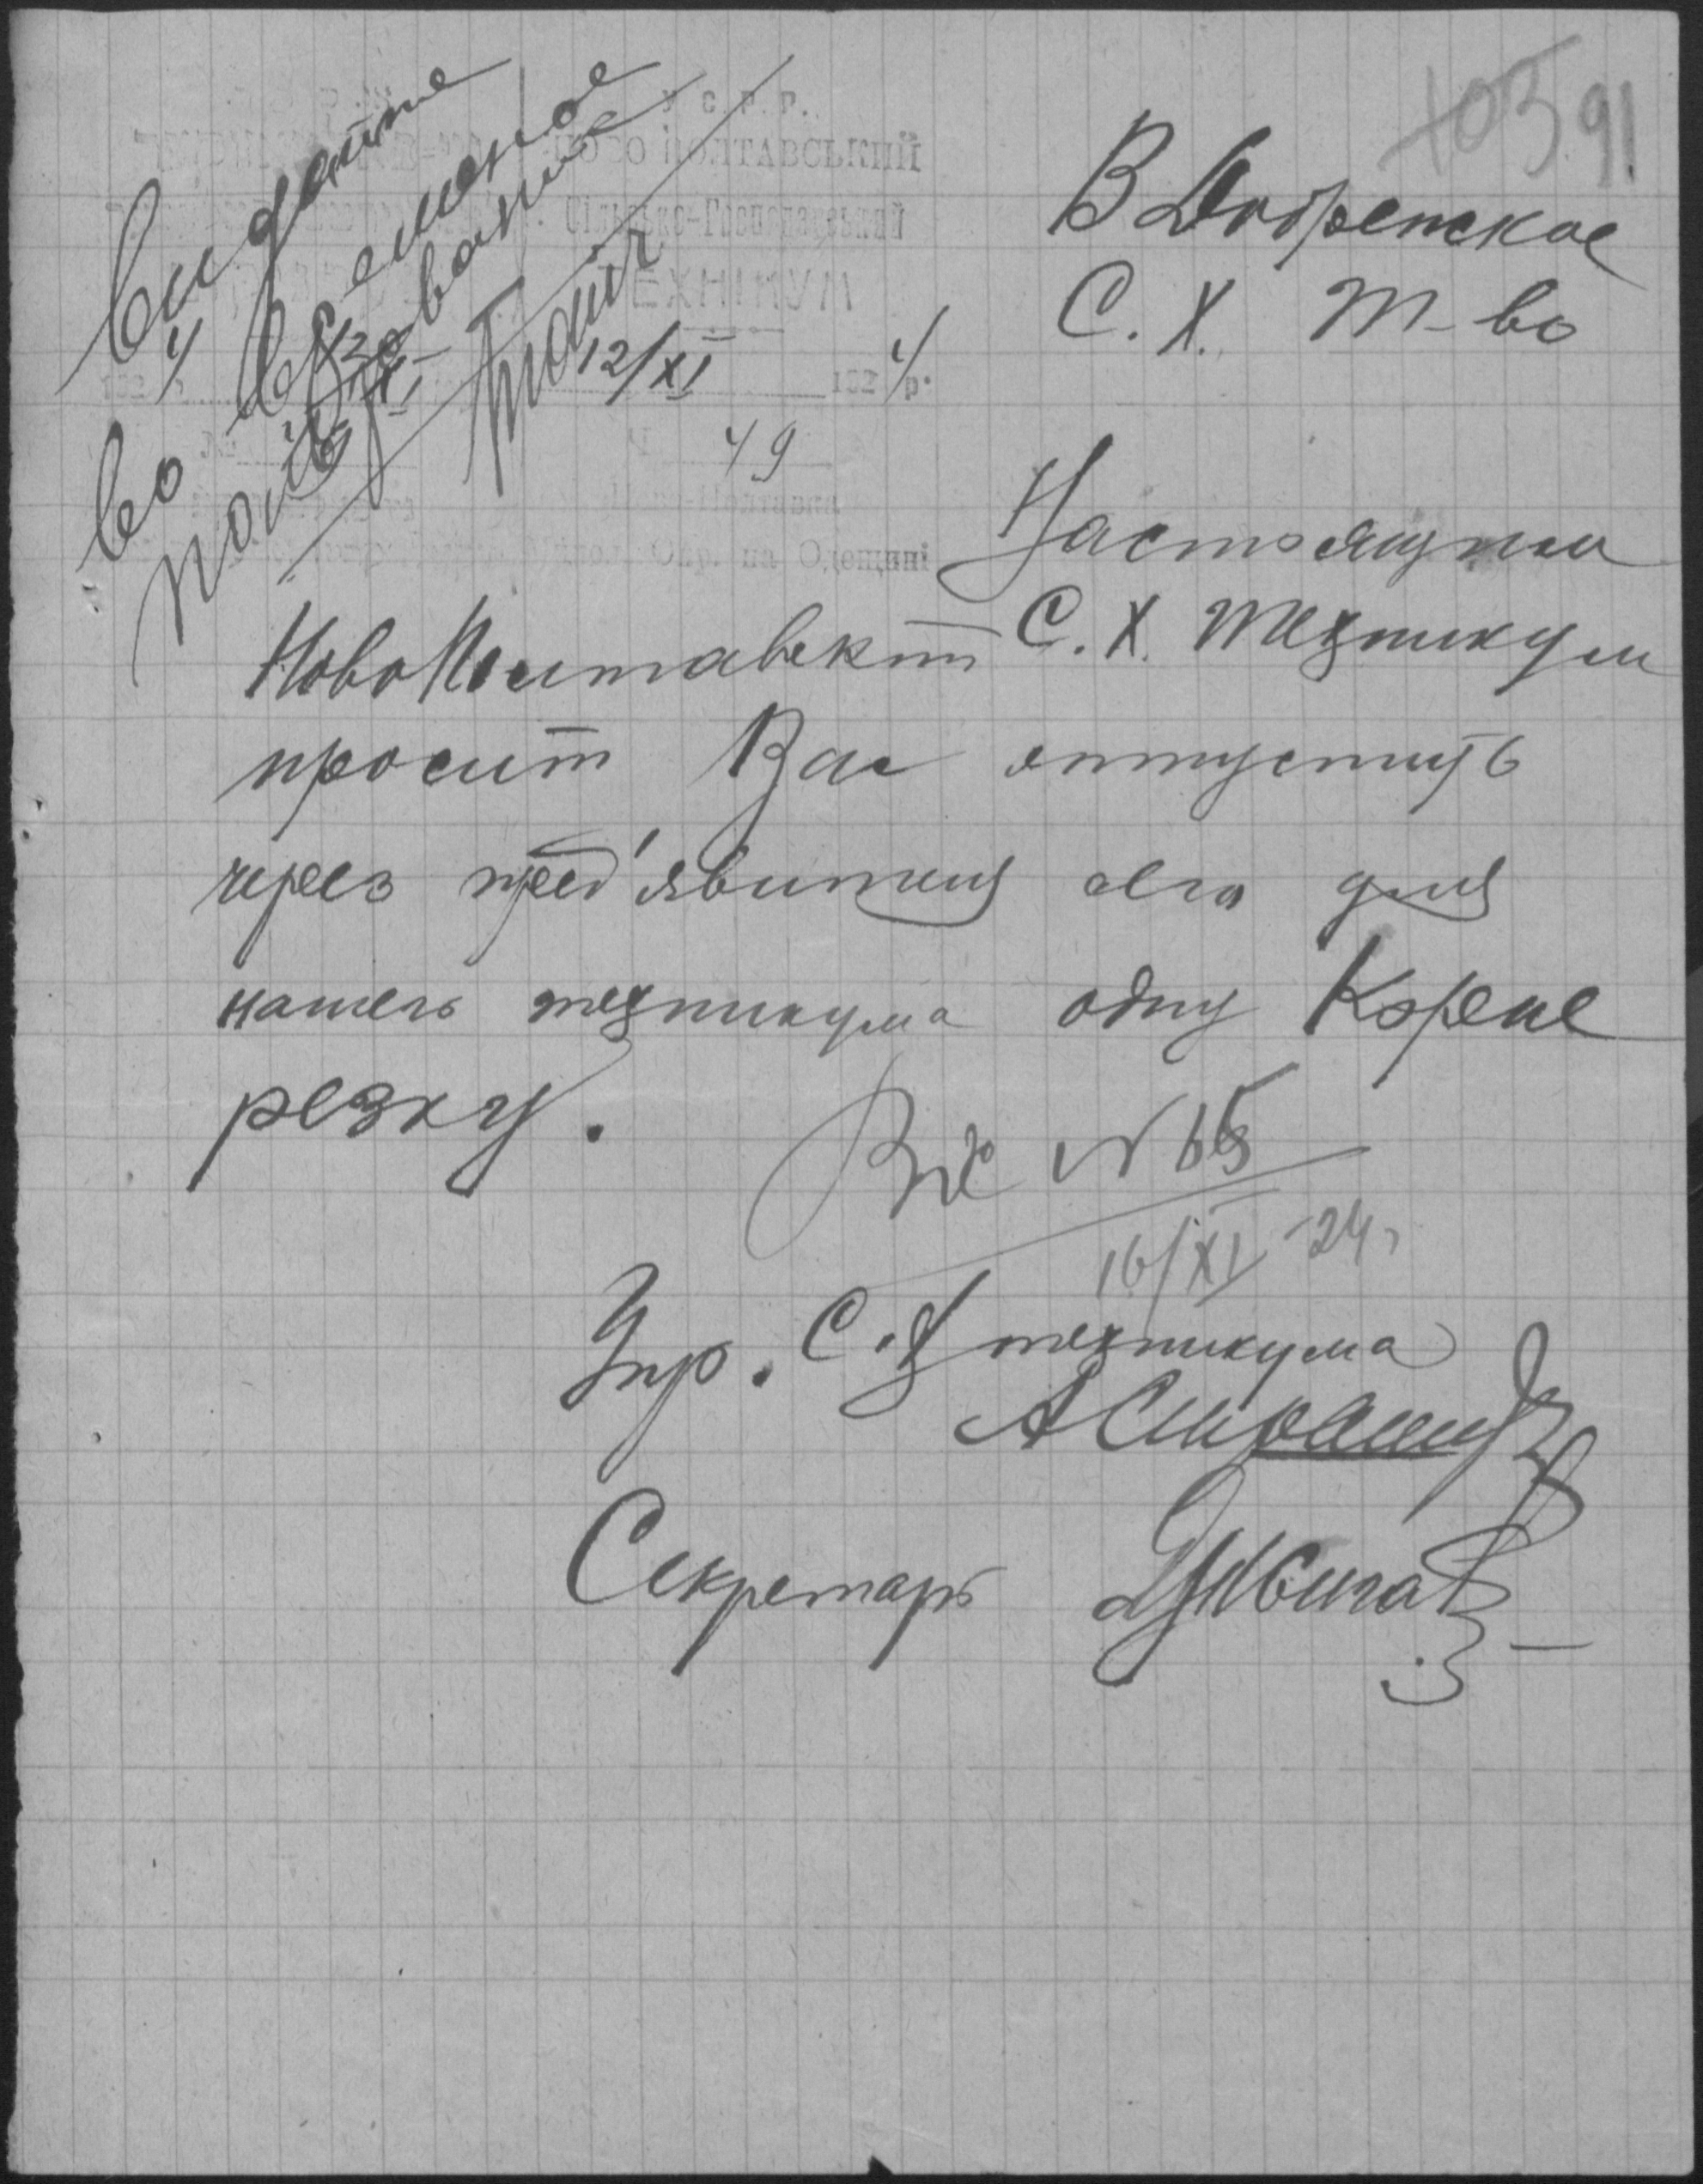 103 91.
У С. Р. Р.
НОВО ПОЛТАВСЬКИЙ
Сільсько-Господарський
ТЕХНІКУМ
12/XI 1924 р.
49
Ново-Полтавка
на Одещині
Выдайте
во временное
пользование
В Добренское
С. Х. т-во
Настоящим
НовоПолтавский С. Х. техникум
просит Вас отпустить
через пред'явителя сего для
нашего техникума одну Корне
резку.
Вх N 65
16/XI -24.
Упр. С.Х техникума
Секретарь